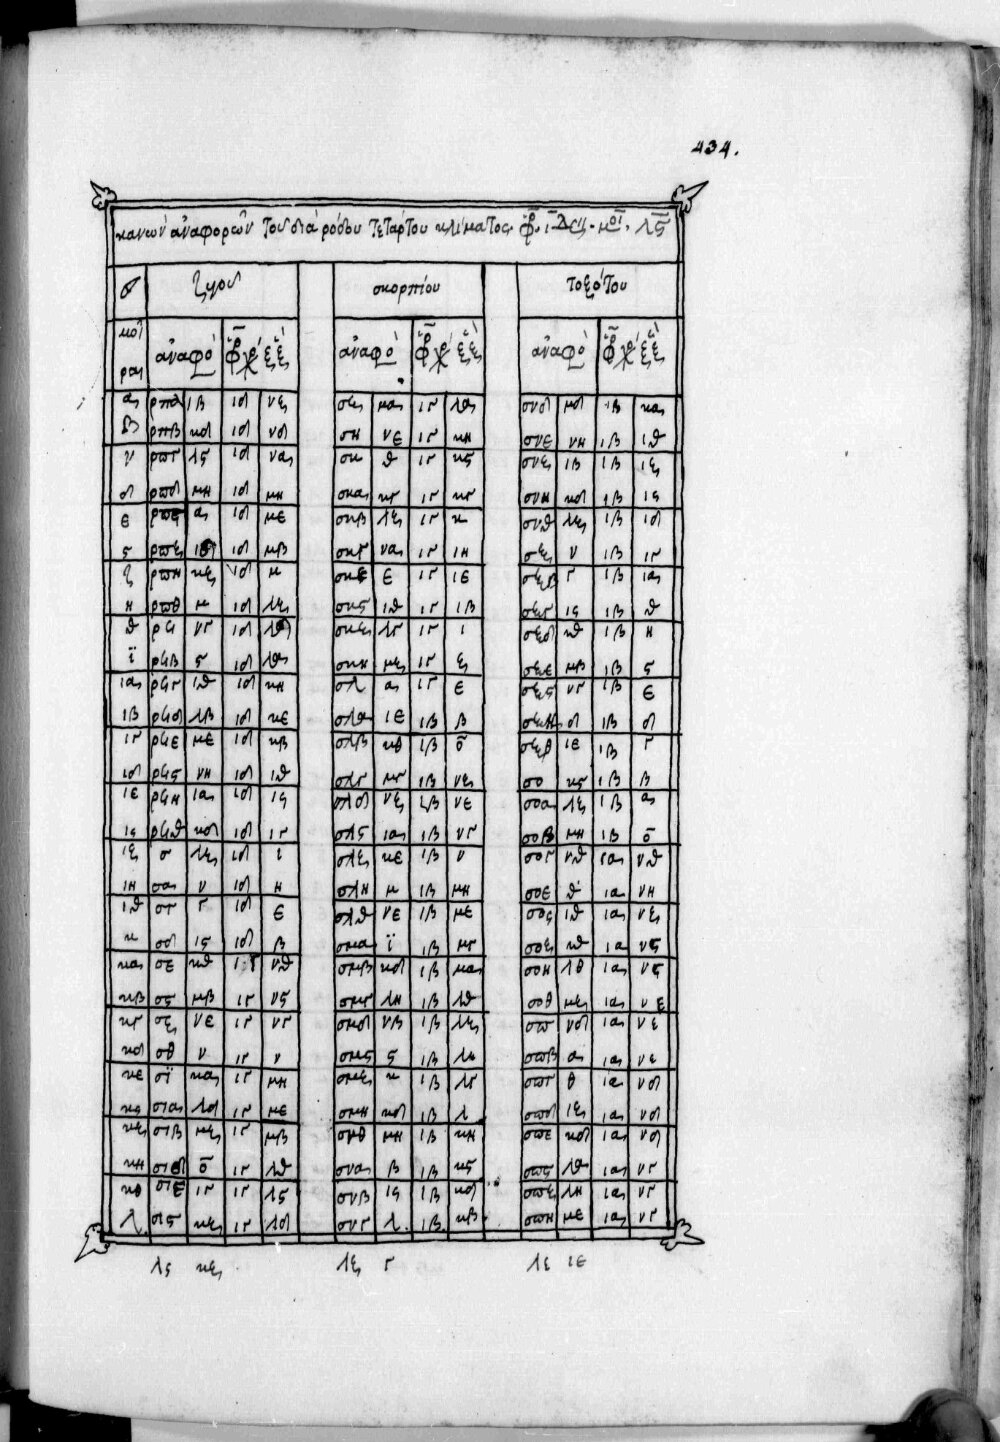 434.
κανων αναφορῶν τοῦ διὰ ρόδου τετάρτου κλίματος
ζυγοῦ σκορπίου τοξότου
μοῖ ραι ἀναφό ἀναφό ἀναφό
α ιβ ιδ νζ σιζ μα ιγ λα συδ μδ ιβ κα
β ρπβ κδ ιδ νδ σιη νε ιγ κη συε νη ιβ ιθ
γ ρπγ λϛ ιδ να σκ θ ιγ κϛ συζ ιβ ιβ ιζ
δ ρπδ μη ιδ μη σκα κγ ιγ κγ συη κδ ιβ ιϛ
ε α ιδ με σκβ λζ ιγ κ συθ λζ ιβ ιδ
ϛ ρπζ ιδ μβ σκγ να ιγ ιη ν ιβ ιγ
ζ ρπη κζ ιδ μ σκε ε ιγ ιε σξβ γ ιβ ια
η ρπθ μ ιδ λζ σκϛ ιθ ιγ ιβ σξγ ιϛ ιβ θ
θ ρϟ νγ ιδ σκζ λγ ιγ ι σξδ κθ ιβ η
ϊ ρϟβ ϛ ιδ λα σκη μζ ιγ ζ σξε μβ ιβ ϛ
ια ρϟγ ιθ ιδ κη σλ α ιγ ε σξϛ νγ ιβ ε
ιβ ρϟδ λβ ιδ κε σλα ιε ιβ β σξη δ ιβ δ
ιγ ρϟε με ιδ κβ σλβ κθ ιβ ο σξθ ιε ιβ γ
ιδ ρϟϛ νη ιδ ιθ σλγ μγ ιβ νζ σο κϛ ιβ β
ιε ρϟη ια ιδ ιϛ σλδ νζ ιβ νε σοα λζ ιβ α
ιϛ ρϟθ κδ ιδ ιγ σλϛ ια ιβ νγ σοβ μη ιβ ο
ιζ σ λζ ιδ ι σλζ κε ιβ ν σογ νθ ια νθ
ιη σα ν ιδ η σλη μ ιβ μη σοε θ ια νη
ιθ σγ γ ιδ ε σλθ νε ιβ με σοϛ ιθ ια νζ
κ σδ ιϛ ιδ β σμα ϊ ιβ μγ σοζ κθ ια νϛ
κα σε κθ ιγ νθ σμβ κδ ιβ μα σοη λθ ια νϛ
κβ σϛ μβ ιγ νϛ σμγ λη ιβ λθ σοθ μζ ια νε
κγ σζ νε ιγ νγ σμδ νβ ιβ λζ σπ νδ ια νε
κδ σθ ν ιγ ν σμϛ ϛ ιβ λε σπβ α ια νε
κε σϊ κα ιγ μη σμζ κ ιβ λγ σπγ θ ια νδ
κϛ σια λδ ιγ με σμη κδ ιβ λ σπδ ιζ ια νδ
κζ σιβ μζ ιγ μβ συθ μη ιβ κη σπε κδ ια νδ
κη σιδ ο ιγ λθ συα β ιβ κϛ σπϛ λθ ια νγ
κθ σιε ιγ ιγ λϛ συβ ιϛ ιβ κδ σπζ λη ια νγ
λ σιϛ κζ ιγ λδ συγ λ ιβ κβ σπη με ια νγ
λϛ κζ λζ γ λε ιε